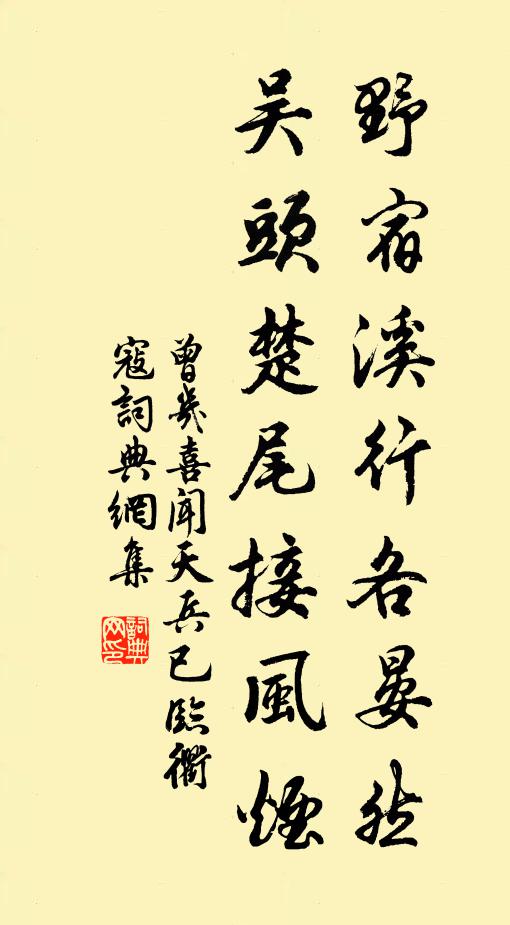 野宿溪行各晏然
吳頭楚尾接風煙
曾幾喜聞天兵已臨衢
寇詞典網集
詞典
网印